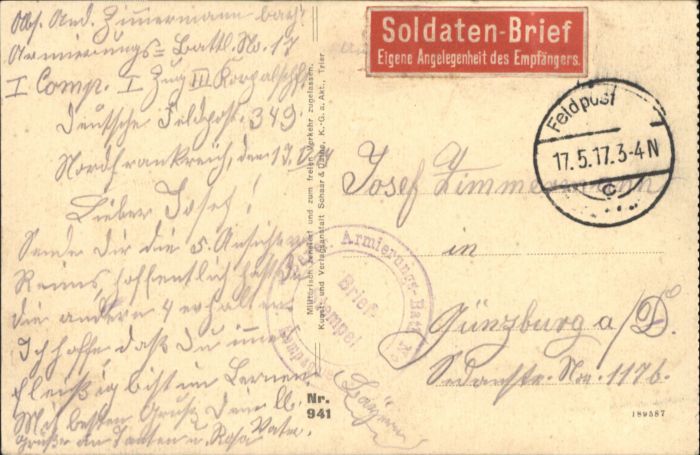 Abs. And. Zimmermann bayr.
Armierungs=Battl. No. 17
I Comp. I Zug III Korpalschft
Deutsche Feldpost. 349.
Nordfrankreich, den 17.
Lieber Josef!
Sende Dir die 5. Ansicht v.
Reims, hoffentlich hast Du
die andern 4 erhalten.
Ich hoffe daß Du immer
fleißig bist im Lernen.
Mit besten Gruß Dein lb.
Vater.
Grüße an Tanten u. Rosa
Militärisch geprüft und zum freien Verkehr zugelassen.
Kunst- und Verlagsanstalt Schaar & Dathe, K.-G. a. Akt., Trier
Nr.
941
Soldaten-Brief
Eigene Angelegenheit des Empfängers.
Feldpost
17.5.17.3-4N
c
Josef Zimmermann
in
Günzburg a/D.
Sedanstr. No. 117b.
(Bayern)
Armierungs-Batl.
Brief-
stempel
189587